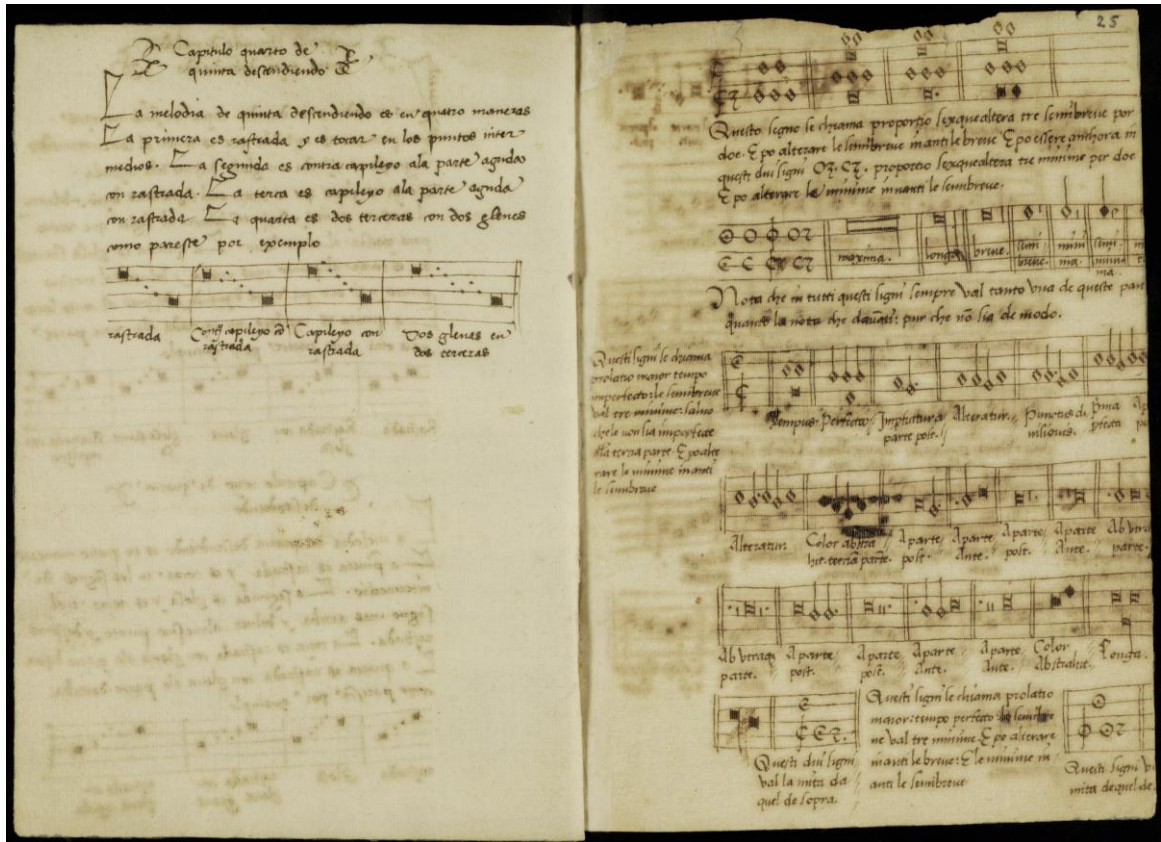 Capitulo quarto de
quinta descendiendo
La melodia de quinta descendiendo es en quatro maneras
La primera es rastrada y es tocar en los puntos inter
medios. La segunda es contra capileyo ala parte aguda
con rastrada. La terca es capileyo ala parte aguda
con rastrada La quarta es dos terceras con dos glenes
como pareste por exemplo
rastrada Contra capileyo cō Capileyo con Dos glenas en
rastrada rastrada dos terceras
25
Questo segno se chiama proportio sexquealtera tre semibreve por
doe. E po alterare le semibreve inanti le breve E po essere anchora in
questi dui signi O2. C2. proportio sexquealtera tre minime per doe
E po alterare le minime inanti le semibreve.
O O O O2
C C C C2
maxima. longa breve. semi mini semi
breve. ma. minima
ma.
Nota che in tutti questi signi sempre val tanto una de queste
quanto la nota che davāti: pur che nō sia de modo.
Questi signi se chiama
prolatio maior tempo
imperfecto: le semibreve
val tre minime: salvo
che le non sia imperfecte
la terza parte. E po alte
rare le minime inanti
le semibreve
Tempus. Perfecta Alteratur.
parte post.
Alteratur Color abstra A parte A parte A parte A parte Ab utra
hit. terciā partē. post. Ante. post. Ante. parte.
Ab utraq A parte A parte A parte A parte Color Longa.
parte. post. post. Ante. Ante. Abstrahit.
Questi dui signi
val la mita da
quel de sopra.
Questi signi se chiama prolatio
maior: tempo perfecto: le semibre
ve val tre minime. E po alterare
inanti le breve: E le minime in
anti le semibreve
Questi signi
mita de quel de